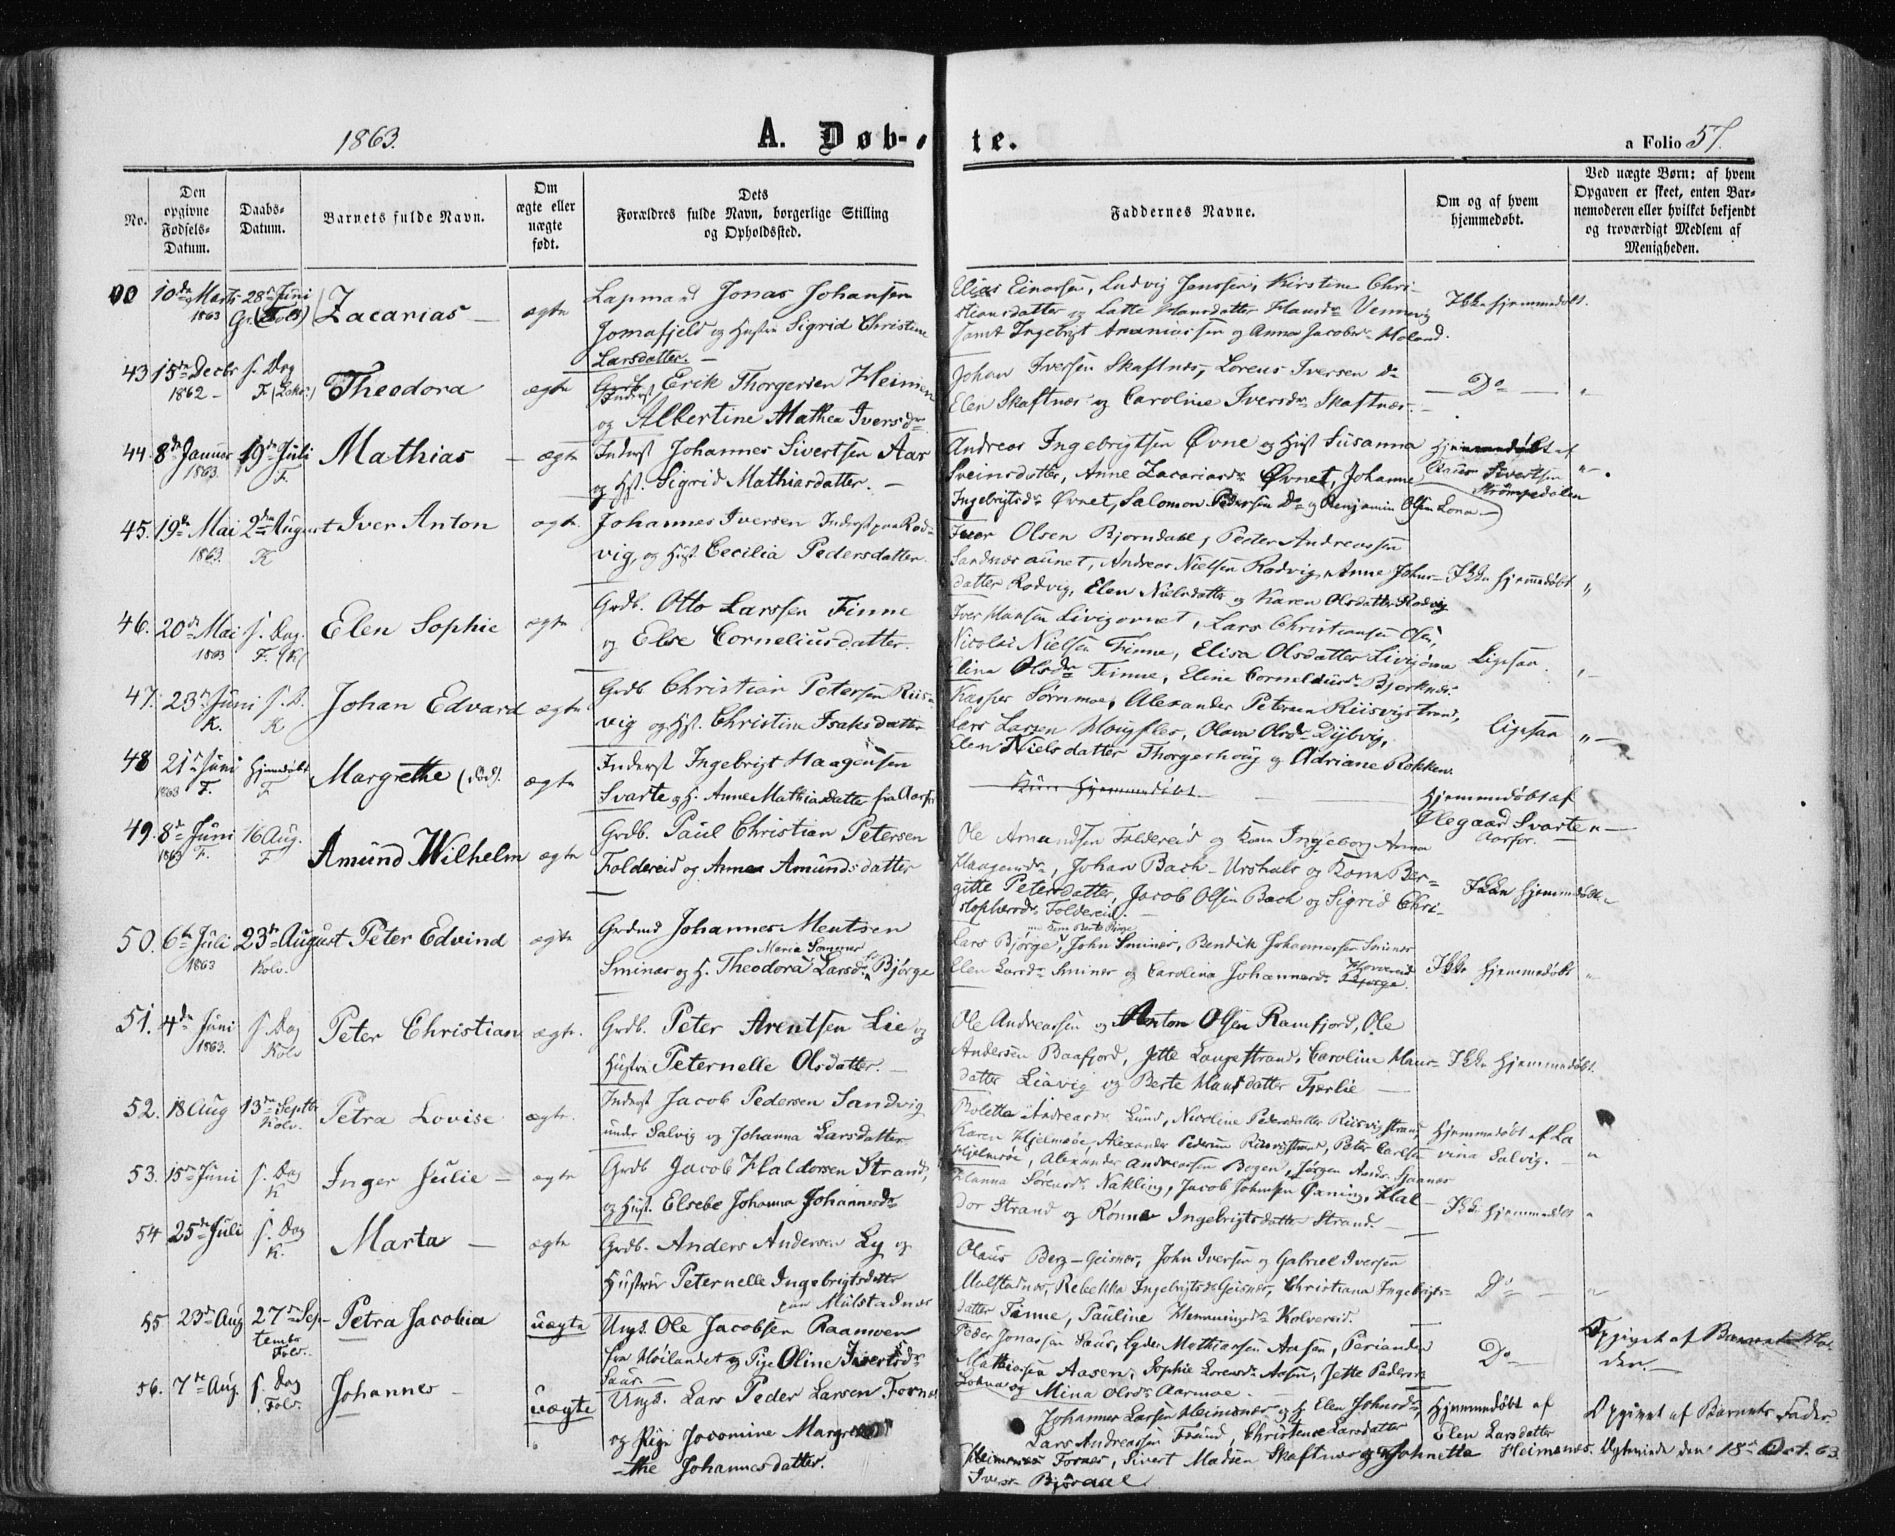 1863.
A. Døb-
te.
a Folio 57.
No.
Den opgivne Fødsels-Datum.
Daabs-Datum.
Barnets fulde Navn.
Om ægte eller uægte født.
Dets Forældres fulde Navn, borgerlige Stilling og Opholdssted.
Faddernes Navne.
Om og af hvem hjemmedøbt.
Ved uægte Børn: af hvem Opgaven er skeet, enten Barnemoderen eller hvilket bekjendt og troværdigt Medlem af Menigheden.
10de Marts 1863
28de Juni
Zacarias
ægte
Lapmand Jonas Johansen
Jomafjeld og Hustru Sigrid Christine
Larsdatter.
Elias Einarsen, Ludvig Jenssen, Kirstine Chri-
stiansdatter og Hansdatter Vennevig
samt Ingebrigt Ananiassen og Anna Jacobsd. Høland.
Ikke hjemmedøbt.
43
15de Decbr 1862
s. Dag
F.
Theodora
ægte
Erik Thorgersen Heimen
og Albertine Mathea Iversdr
Johan Iversen Skaftnes, Lorents Iversen do
Elen Skaftnæs og Caroline Iversdr Skaftnæs.
Do
44.
8de Januar 1863.
19de Juli
F.
Mathias
ægte
Inderst Johannes Sivertsen Aar
og Hst. Sigrid Mathiasdatter.
Andreas Ingebrigtsen Øvne og Hust Susanna
Sveinsdatter, Anne Zacariasdr Øvnet, Johanne
Ingebrigtsdr Øvnet, Salomon Pedersen Do og Benjamin Olsen Lona
Hjemmedøbt af
Sivertsen
Strømpedalen
45.
19de Mai 1863.
2den August
K
Iver Anton
ægte.
Johannes Iversen Inderst paa Rod-
vig, og Hust Cecilia Pedersdatter.
Iver Olsen Bjorndal, Peter Andreassen
Sandnæsaunet, Andreas Nielsen Rodvig, Anne Johns-
datter Rodvig, Elen Nielsdatter og Karen Olsdatter Rodvig
Ikke hjemmedøbt
46.
20de Mai 1863
s. Dag.
F. (K)
Elen Sophie
ægte
Grdb. Otto Larssen Finne
og Else Corneliusdatter.
Iver Hansen, Lars Christiansen
Nicolai Nielsen Finne, Elisa Olsdatter
Elina Olsdr Finne, Elina Corneliusdr Bjorknes.
Ligesaa
47.
23de Juni
K.
s. D.
K
Johan Edvard
ægte
Grdb Christian Petersen Riis-
vig og Hst. Christine Isaksdatter
Kasper Sørnmoe, Alexander Petersen Riisvigstrand,
Lars Larsen, Olava Olsdr Dybvig,
Elen Nielsdatter Thorgershoug og Adriane Rokken.
Ligesaa
48
21de Juni 1863
F.
Hjemdøbt
F
Margrethe (død).
ægte
Inderst Ingebrigt Haagensen
Svarte og H. Anne Mathiasdatter fra Aarfor
Kun Hjemmedøbt.
Hjemmedøbt af
Olegaard Svarte
Aarfor.
49.
8de Juni 1863
F.
16 Aug.
F
Amund Wilhelm
ægte
Grdb. Paul Christian Petersen
Foldereid og Anne Amundsdatter
Ole Amundsen Foldereid og Kone Ingeborg Anna
Haagensdr, Johan Bach Urstad og Kone Ber-
gitte Petersdatter, Jacob Olsen Bach og Sigrid Chri-
stophersdr Foldereid.
Ikke hjemmedøbt.
50.
6te Juli 1863
23de August
Kolv.
Peter Edvind
ægte
Grdmd Johannes Mentsen
Sminæs og H. Theodora Larsdr Bjørge
Lars Bjørge, John Sminæs, Bendik Johannessen Sminæs
Elen Larsdr Sminæs og Carolina Johannesdr Bjørge.
Ikke hjemmedøbt
51.
4de Juni 1863.
s. Dag
Kolv
Peter Christian
ægte.
Grdb. Peter Arentsen Lie og
Hustru Peternelle Olsdatter.
Ole Andreassen og Anton Olsen Ramfjord, Ole
Andersen Baafjord, Jette Langestrand, Caroline Hans-
datter Liavig og Berte Hansdatter Fjerlie
Ikke hjemmedøbt
52.
18 Aug
13de Septbr
Kolv.
Petra Lovise
ægte.
Inderst Jacob Pedersen Sandvig
under Salvig og Johanna Larsdatter
Boletta Andreasdr Lund, Nicoline Pedersdatter Riisvigstrand,
Karen Hjelmsøe, Alexander Pedersen Riisvigstrand, Peter Carlsen
Hjelmsøe, Alexander Andreassen Bogen, Jørgen
Hjemmedøbt af La
vina Salvig.
53.
15de Juni
s. Dag
K
Inger Julie
ægte
Grdb Jacob Haldorsen Strand,
og Hust. Elsebe Johanna Johannesdr
Hanna Sørensdr Nakling, Jacob Johnsen, Hal-
dor Strand og Rønne Ingebrigtsdatter Strand.
Ikke hjemmedøbt
54
25de Juli
s. Dag
K.
Marta
ægte
Grdb. Anders Andersen Ly og
Hustru Peternelle Ingebrigtsdatter
paa Mulstadnæs
Olaus Berg-Geisnæs, John Iversen og Gabriel Iversen
Mulstadnæs, Rebekka Ingebrigtsdr Geisnæs, Christiana Ingebrigts-
datter Finne, Pauline Hemmingsdr Kolvereid.
Do
55
23de Aug
27de Sep-
tembr
Fold.
Petra Jacobia
uægte
Ungd. Ole Jacobsen Raamoen
fra Høilandet og Pige Oline Sivertsdr
Saar.
Peder Jonassen Saur, Eyder Mathiassen Aasen, Periander
Mathiassen Aasen, Sophie Lorensdr Aasen, Jette Pedersdr
og Mina Olsdr Aarmoe.
Do
Opgivet af Barnets Mo
der.
56.
7de Aug.
s. Dag
Fold.
Johannes
uægte
Ungd. Lars Peder Larsen Fornes
og Pige Jacomine Margre
the Johannesdatter.
Johannes Larsen Heimenæs og H. Elen Johnsdr,
Lars Andreassen, Christence Larsdatter
Fornes, Sivert Madsen Skaftnæs og Johnetta
Iversdr Bjørdal
Hjemmedøbt af
Elen Larsdatter
Heimenæs.
Opgivet af Barnets Fader
den 18de Oct. 63.